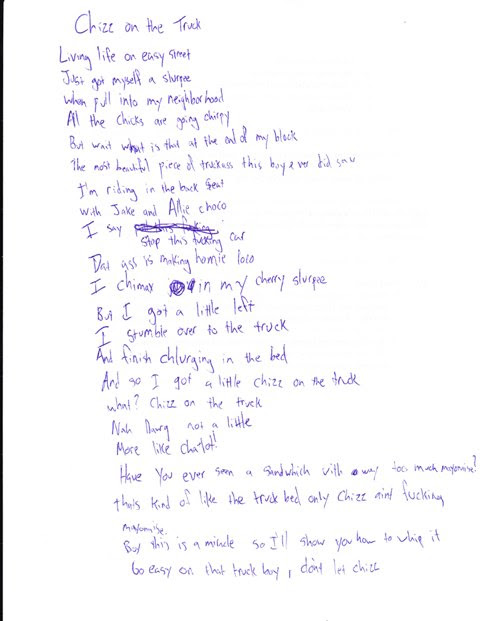 Chizz on the Truck
Living life on easy street
Just got myself a slurpee
When pull into my neighborhood
All the chicks are going chirpy
But wait what is that at the end of my block
The most beautiful piece of truckass this boy ever did saw
I'm riding in the back seat
With Jake and Allie choco
I say
stop this fucking car
Dat ass is making homie loco
I chimax in my cherry slurpee
But I got a little left
I stumble over to the truck
And finish chlurging in the bed
And so I got a little chizz on the truck
what? Chizz on the truck
Nah Dawg not a little
More like chalot!
Have You ever seen a sandwhich with way too much mayonnaise?
thats kind of like the truck bed only Chizz aint fucking
mayonaise.
Boy this is a miracle so I'll show you how to whip it
Go easy on that truck boy, dont let chizz